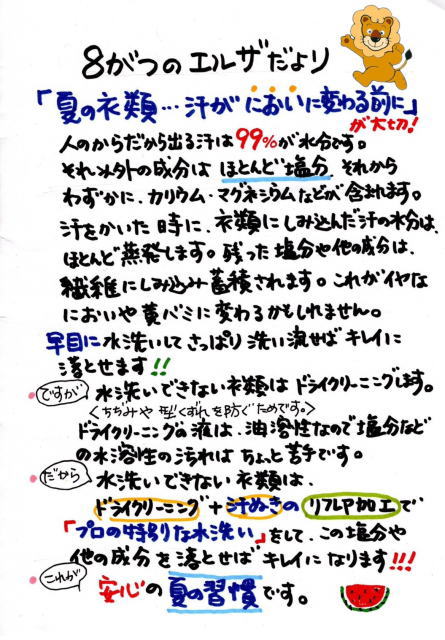 8がつのエルザだより
「夏の衣類…汗がにおいに変わる前に」
が大切!
人のからだから出る汗は99%が水分です。
それ以外の成分はほとんど塩分、それから
わずかに、カリウム・マグネシウムなどが含まれます。
汗をかいた時に、衣類にしみ込んだ汗の水分は、
ほとんど蒸発します。残った塩分や他の成分は、
繊維にしみ込み蓄積されます。これがイヤな
においや黄バミに変わるかもしれません。
早目に水洗いしてさっぱり洗い流せばキレイに
落とせます!!
ですが 水洗いできない衣類はドライクリーニングします。
<ちぢみや型くずれを防ぐためです。>
ドライクリーニングの液は、油溶性なので塩分など
の水溶性の汚れはちょっと苦手です。
だから 水洗いできない衣類は、
ドライクリーニング+汗ぬきのリフレア加工で
「プロの特別な水洗い」をして、この塩分や
他の成分を落とせばキレイになります!!!
これが 安心の夏の習慣です。